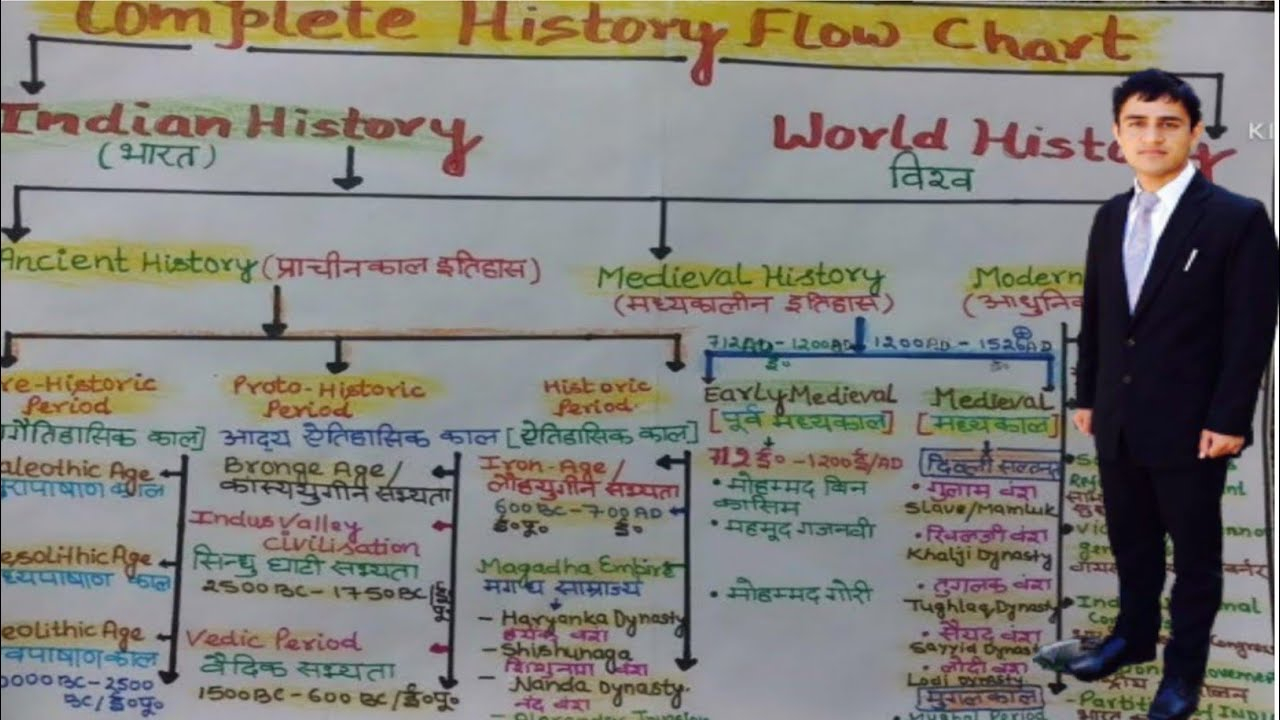 Complete History Flow Chart
Indian History
(भारत)
World History
विश्व
KI
Ancient History (प्राचीनकाल इतिहास)
Medieval History
(मध्यकालीन इतिहास)
Modern
(आधुनि
712AD-1200AD
ई०
1200AD-1526AD
ई०
re-Historic
Period
गैतिहासिक काल]
aleothic Age
पुरापाषाण काल
esolithic Age
ध्यपाषाण काल
eolithic Age
वपाषाण काल
0000BC-2500
BC/ई०पू०
Proto-Historic
Period
आद्य ऐतिहासिक काल
Bronge Age/
कास्ययुगीन सभ्यता
Indus Valley
Civilisation
सिन्धु घाटी सभ्यता
2500BC-1750BC/ई०पू०
Vedic Period
वैदिक सभ्यता
1500BC-600BC/ई०पू०
Historic
Period.
[ऐतिहासिक काल]
Iron-Age/
लौहयुगीन सभ्यता
600BC-700AD
ई०पू० ई०
Magadha Empire
मगध साम्राज्य
- Haryanka Dynasty
हर्यक वंश
- Shishunaga
शिशुनाग वंश
- Nanda Dynasty.
नंद वंश
Early Medieval
[पूर्व मध्यकाल]
712ई०-1200ई/AD
• मोहम्मद बिन
कासिम
• महमूद गजनवी
• मोहम्मद गोरी
Medieval
[मध्यकाल]
दिल्ली सल्तनत
• गुलाम वंश
Slave/Mamluk
• खिलजी वंश
Khalji Dynasty
• तुगलक वंश
Tughlaq Dynasty
• सैयद वंश
Sayyid Dynasty
• लोदी वंश
Lodi Dynasty
मुगलकाल
Mughal Period